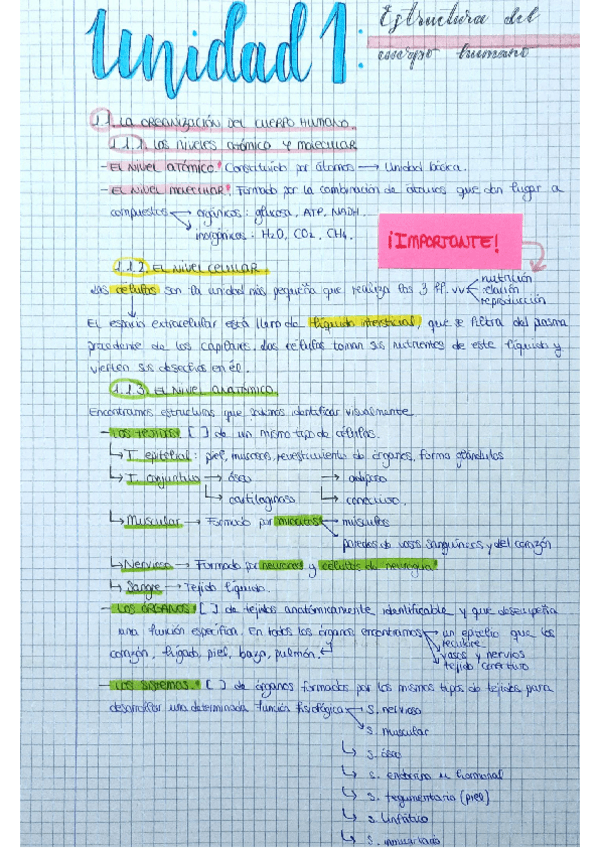 Unidad 1: Estructura del
cuerpo humano
1.1 LA ORGANIZACIÓN DEL CUERPO HUMANO.
1.1.1. LOS NIVELES ATÓMICO Y MOLECULAR
- EL NIVEL ATÓMICO: Constituido por átomos → Unidad básica.
- EL NIVEL MOLECULAR: Formado por la combinación de átomos que dan lugar a
compuestos orgánicos: glucosa, ATP, NADH.
inorgánicos: H2O, CO2, CH4.
¡IMPORTANTE!
1.1.2. EL NIVEL CELULAR
Las células son la unidad más pequeña que realiza las 3 ff. vv
nutrición
relación
reproducción
El espacio extracelular está lleno de líquido intersticial, que se filtra del plasma
procedente de los capilares. Las células toman sus nutrientes de este líquido y
vierten sus desechos en él.
1.1.3. EL NIVEL ANATÓMICO.
Encontramos estructuras que podemos identificar visualmente
- LOS TEJIDOS: [ ] de un mismo tipo de células.
↳ T. epitelial: piel, mucosas, revestimiento de órganos, forma glándulas
↳ T. conjuntivo → óseo → adiposo
↳ cartilaginoso ↳ conectivo.
↳ Muscular → Formado por miocitos músculos
paredes de vasos sanguíneos y del corazón
↳ Nervioso → Formado por neuronas y células de neuroglía
↳ Sangre → Tejido líquido.
- LOS ÓRGANOS: [ ] de tejidos anatómicamente identificable y que desempeña
una función específica. En todos los órganos encontramos un epitelio que los
recubre
corazón, hígado, piel, bazo, pulmón. vasos y nervios
tejido conectivo
- LOS SISTEMAS: [ ] de órganos formados por los mismos tipos de tejidos para
desarrollar una determinada función fisiológica → S. nervioso
S. muscular
↳ S. óseo
↳ S. endocrino u hormonal
↳ S. tegumentario (piel)
↳ S. linfático
↳ S. inmunitario